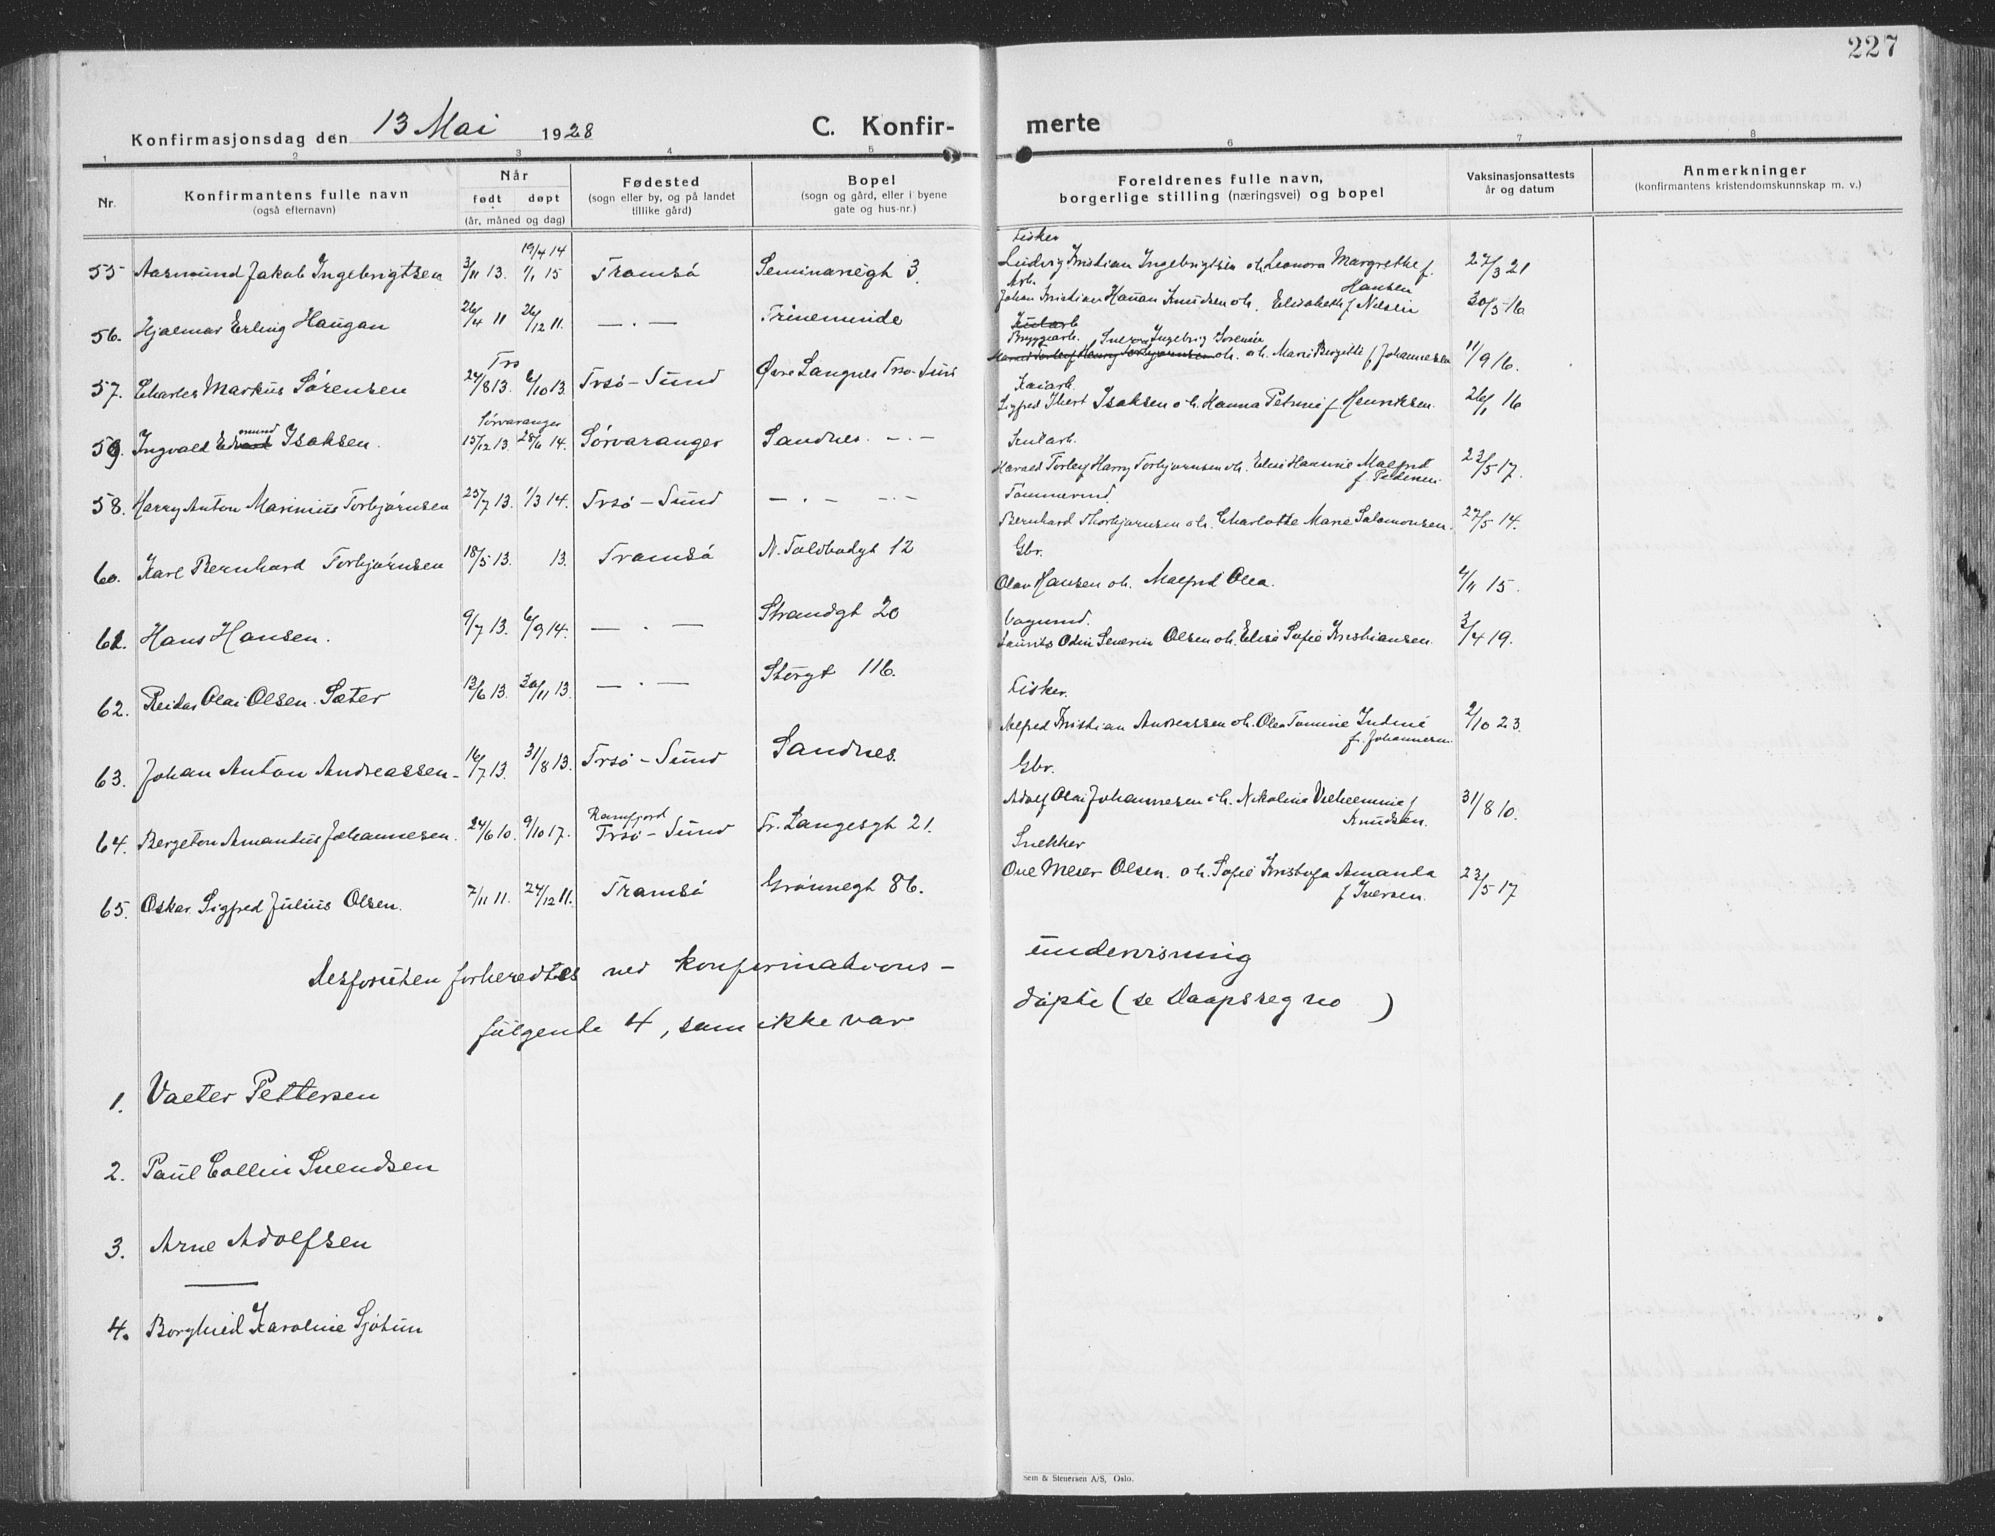 227
Konfirmasjonsdag den 13 Mai 1928
C. Konfir-
merte
1 2 3 4 5 6 7 8
Nr.
Konfirmantens fulle navn
(også efternavn)
Når
født døpt
(år, måned og dag)
Fødested
(sogn eller by, og på landet
tillike gård)
Bopel
(sogn og gård, eller i byene
gate og hus-nr.)
Foreldrenes fulle navn,
borgerlige stilling (næringsvei) og bopel
Vaksinasjonsattests
år og datum
Anmerkninger
(konfirmantens kristendomskunnskap m. v.)
19/4 14
Fisker
55 Aasmund Jakob Ingebrigtsen 3/11 13. 4/1 15 Tromsö Seminariegt 3. Ludvig Kristian Ingebrigtsen o h. Leonora Margrethe f. Hansen 27/3 21
Arb.
56. Hjalmar Erling Haugan 26/4 11 26/12 11. — . — Trineminde Johan Kristian Hauan Knudsen o h. Elisabeth f Nilsen 30/5 16
Bryggearb.
57. Charles Markus Sørensen 24/8 13. 6/10 13 Trsö - Sund Övre Langnes Trsö-Sund o h. Marie Bergitte f Johannesen 11/9 16.
Kaiarb.
Sørvaranger
59. Ingvald Edmund Isaksen. 15/12 13 28/6 14. Sörvaranger Sandnes. — . — Sigfred Ibert Isaksen o h. Hanna Petrine f. Henriksen. 26/1 16
58. Harry Anton Marinius Torbjørnsen 25/7 13. 1/3 14. Trsö - Sund — . — — . — Harald Torleif Harry Torbjørnsen o h. Elise Hansine Malfrid f. Pedersen. 23/5 17.
Tømmermd.
60. Karl Bernhard Torbjørnsen 18/5 13. 13. Tromsö N. Toldbodgt 12 Bernhard Thorbjørnsen o h. Charlotte Marie Salomonsen. 27/5 14.
Gbr.
61. Hans Hansen. 9/7 13. 6/9 14. — . — Strandgt 20 Olav Hansen o h. Malfrid Olea. 4/11 15.
Vognmd.
62. Reidar Olai Olsen Sæter 13/6 13. 30/11 13. — . — Storgt 116. Laurits Odin Severin Olsen o h. Elise Sofie Kristiansen. 3/4 19.
Fisker.
63. Johan Anton Andreassen 16/7 13. 31/8 13. Trsö - Sund Sandnes. Alfred Kristian Andreassen o h. Olea Tomine f. Johannesen 2/10 23.
Gbr.
Ramfjord
64. Bergeton Amandus Johannesen. 24/6 10. 9/10 17. Trsö - Sund Fr. Langesgt 21. Adolf Olai Johannesen o h. Nikoline Vilhelmine f Knudsen. 31/8 10.
Snekker
65. Oskar Sigfred Julius Olsen. 7/11 11. 24/12 11. Tromsö Grönnegt 86. Ove Meier Olsen. o h. Sofie Kristofa Amanda f Iversen. 23/5 17
Desforuten forberedtes ved konfirmations-undervisning
følgende 4, som ikke var döpte (se Daapsreg no )
1. Valter Pettersen
2. Paul Collin Svendsen
3. Arne Adolfsen
4. Borghild Karoline Sjötun
Sem & Stenersen A/S, Oslo.